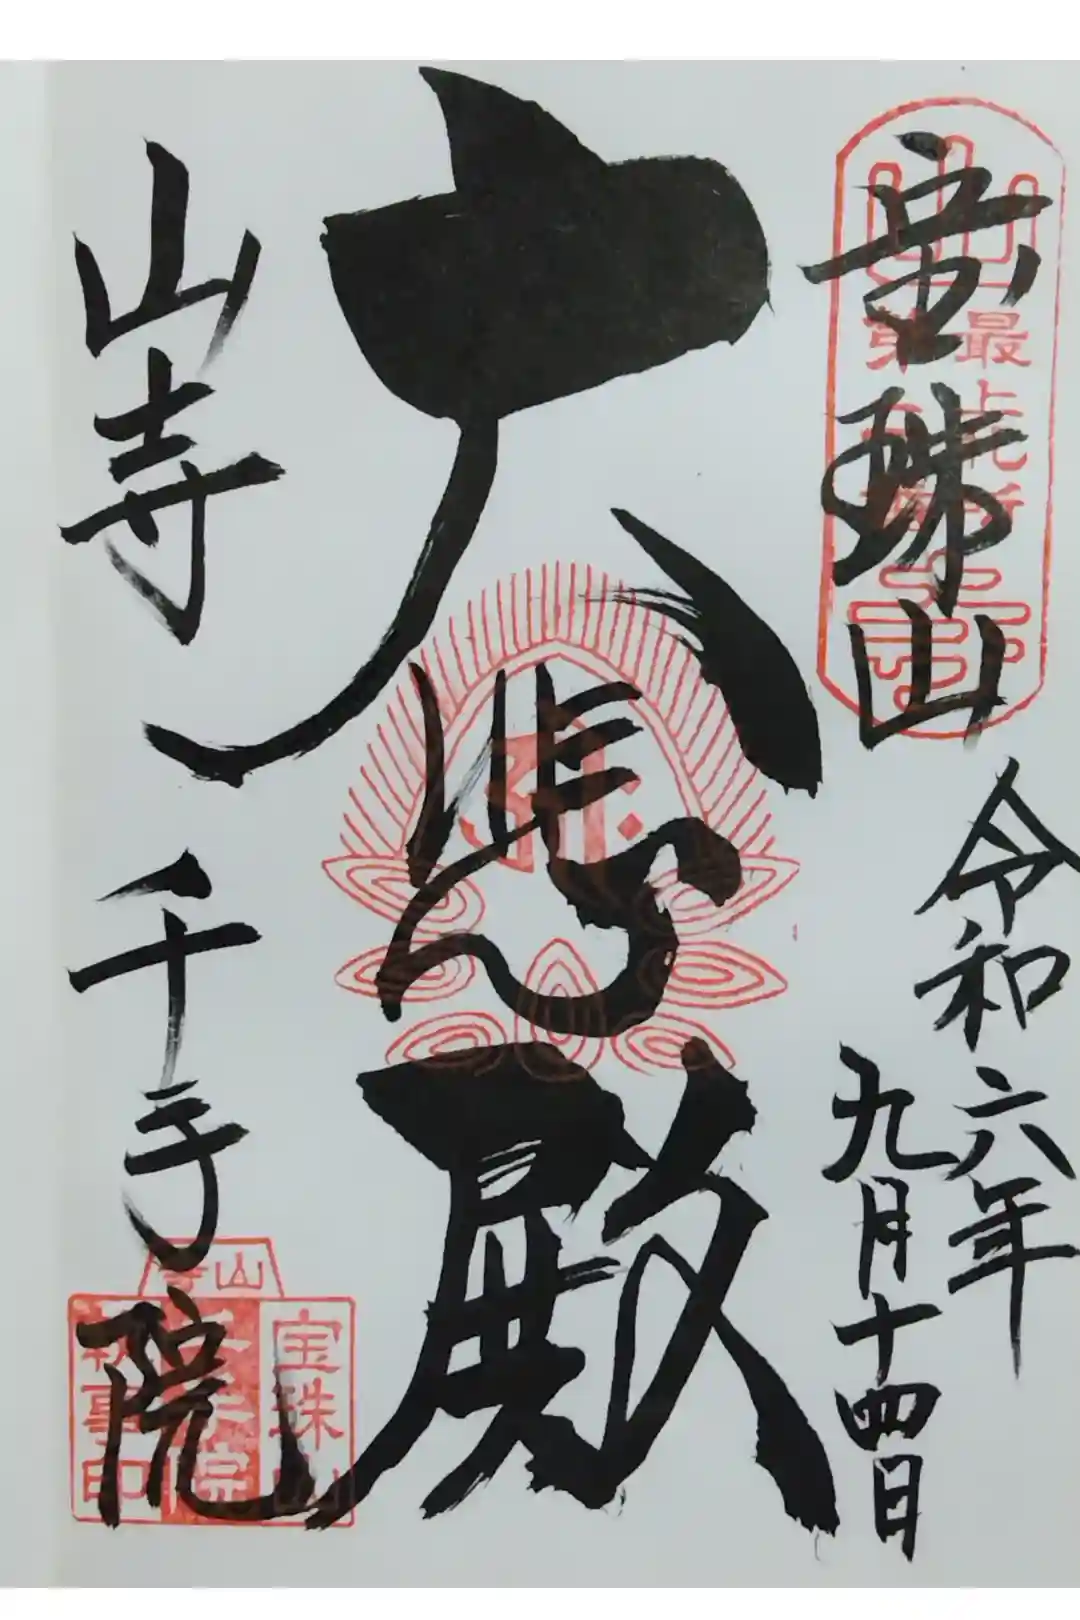 宝珠山
令和六年
九月十四日
大悲殿
山寺
千手院
最上札所
第二番
山寺
宝珠山
執事印